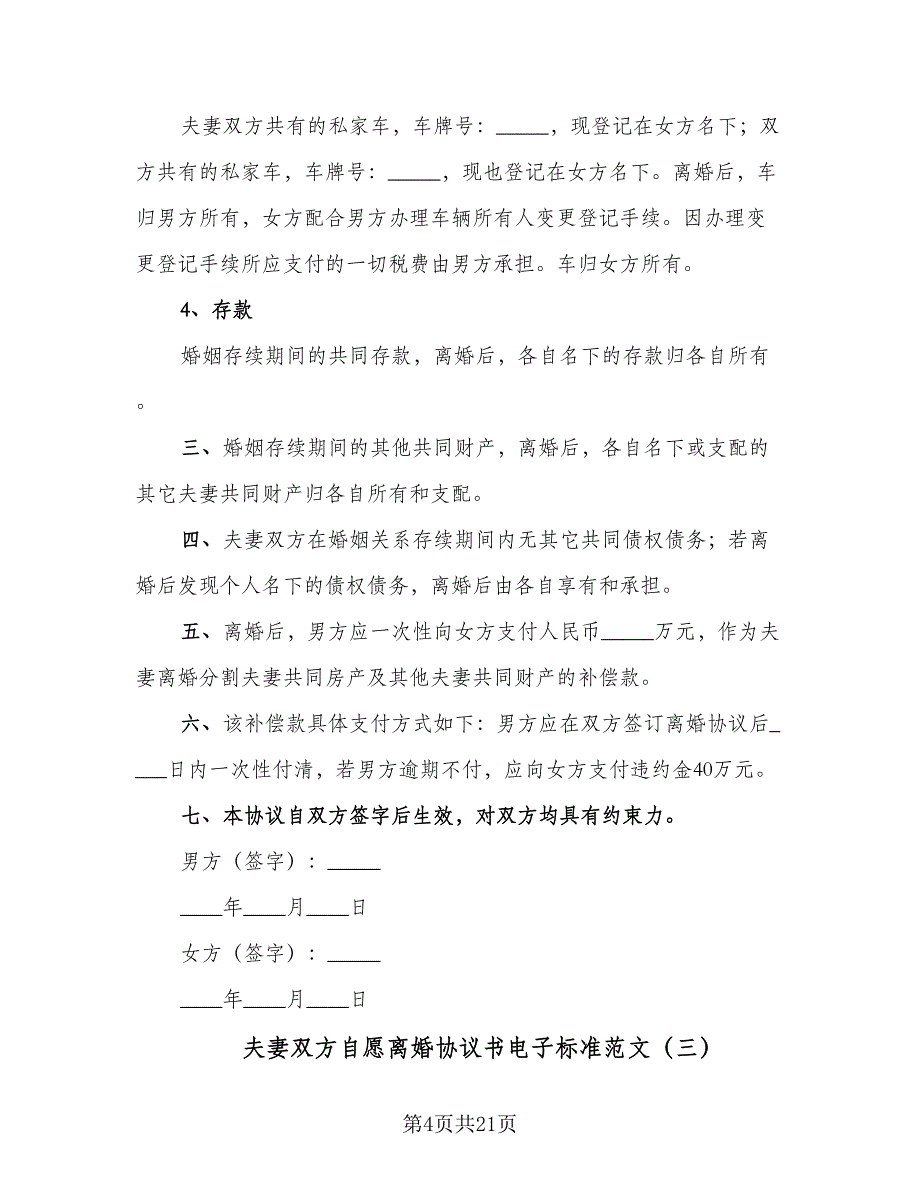 夫妻双方共有的私家车，车牌号：_____，现登记在女方名下；双
方共有的私家车，车牌号：_____，现也登记在女方名下。离婚后，车
归男方所有，女方配合男方办理车辆所有人变更登记手续。因办理变
更登记手续所应支付的一切税费由男方承担。车归女方所有。
4、存款
婚姻存续期间的共同存款，离婚后，各自名下的存款归各自所有
。
三、婚姻存续期间的其他共同财产，离婚后，各自名下或支配的
其它夫妻共同财产归各自所有和支配。
四、夫妻双方在婚姻关系存续期间内无其它共同债权债务；若离
婚后发现个人名下的债权债务，离婚后由各自享有和承担。
五、离婚后，男方应一次性向女方支付人民币_____万元，作为夫
妻离婚分割夫妻共同房产及其他夫妻共同财产的补偿款。
六、该补偿款具体支付方式如下：男方应在双方签订离婚协议后_
___日内一次性付清，若男方逾期不付，应向女方支付违约金40万元。
七、本协议自双方签字后生效，对双方均具有约束力。
男方（签字）：_____
____年____月____日
女方（签字）：_____
____年____月____日
夫妻双方自愿离婚协议书电子标准范文（三）
第4页共21页